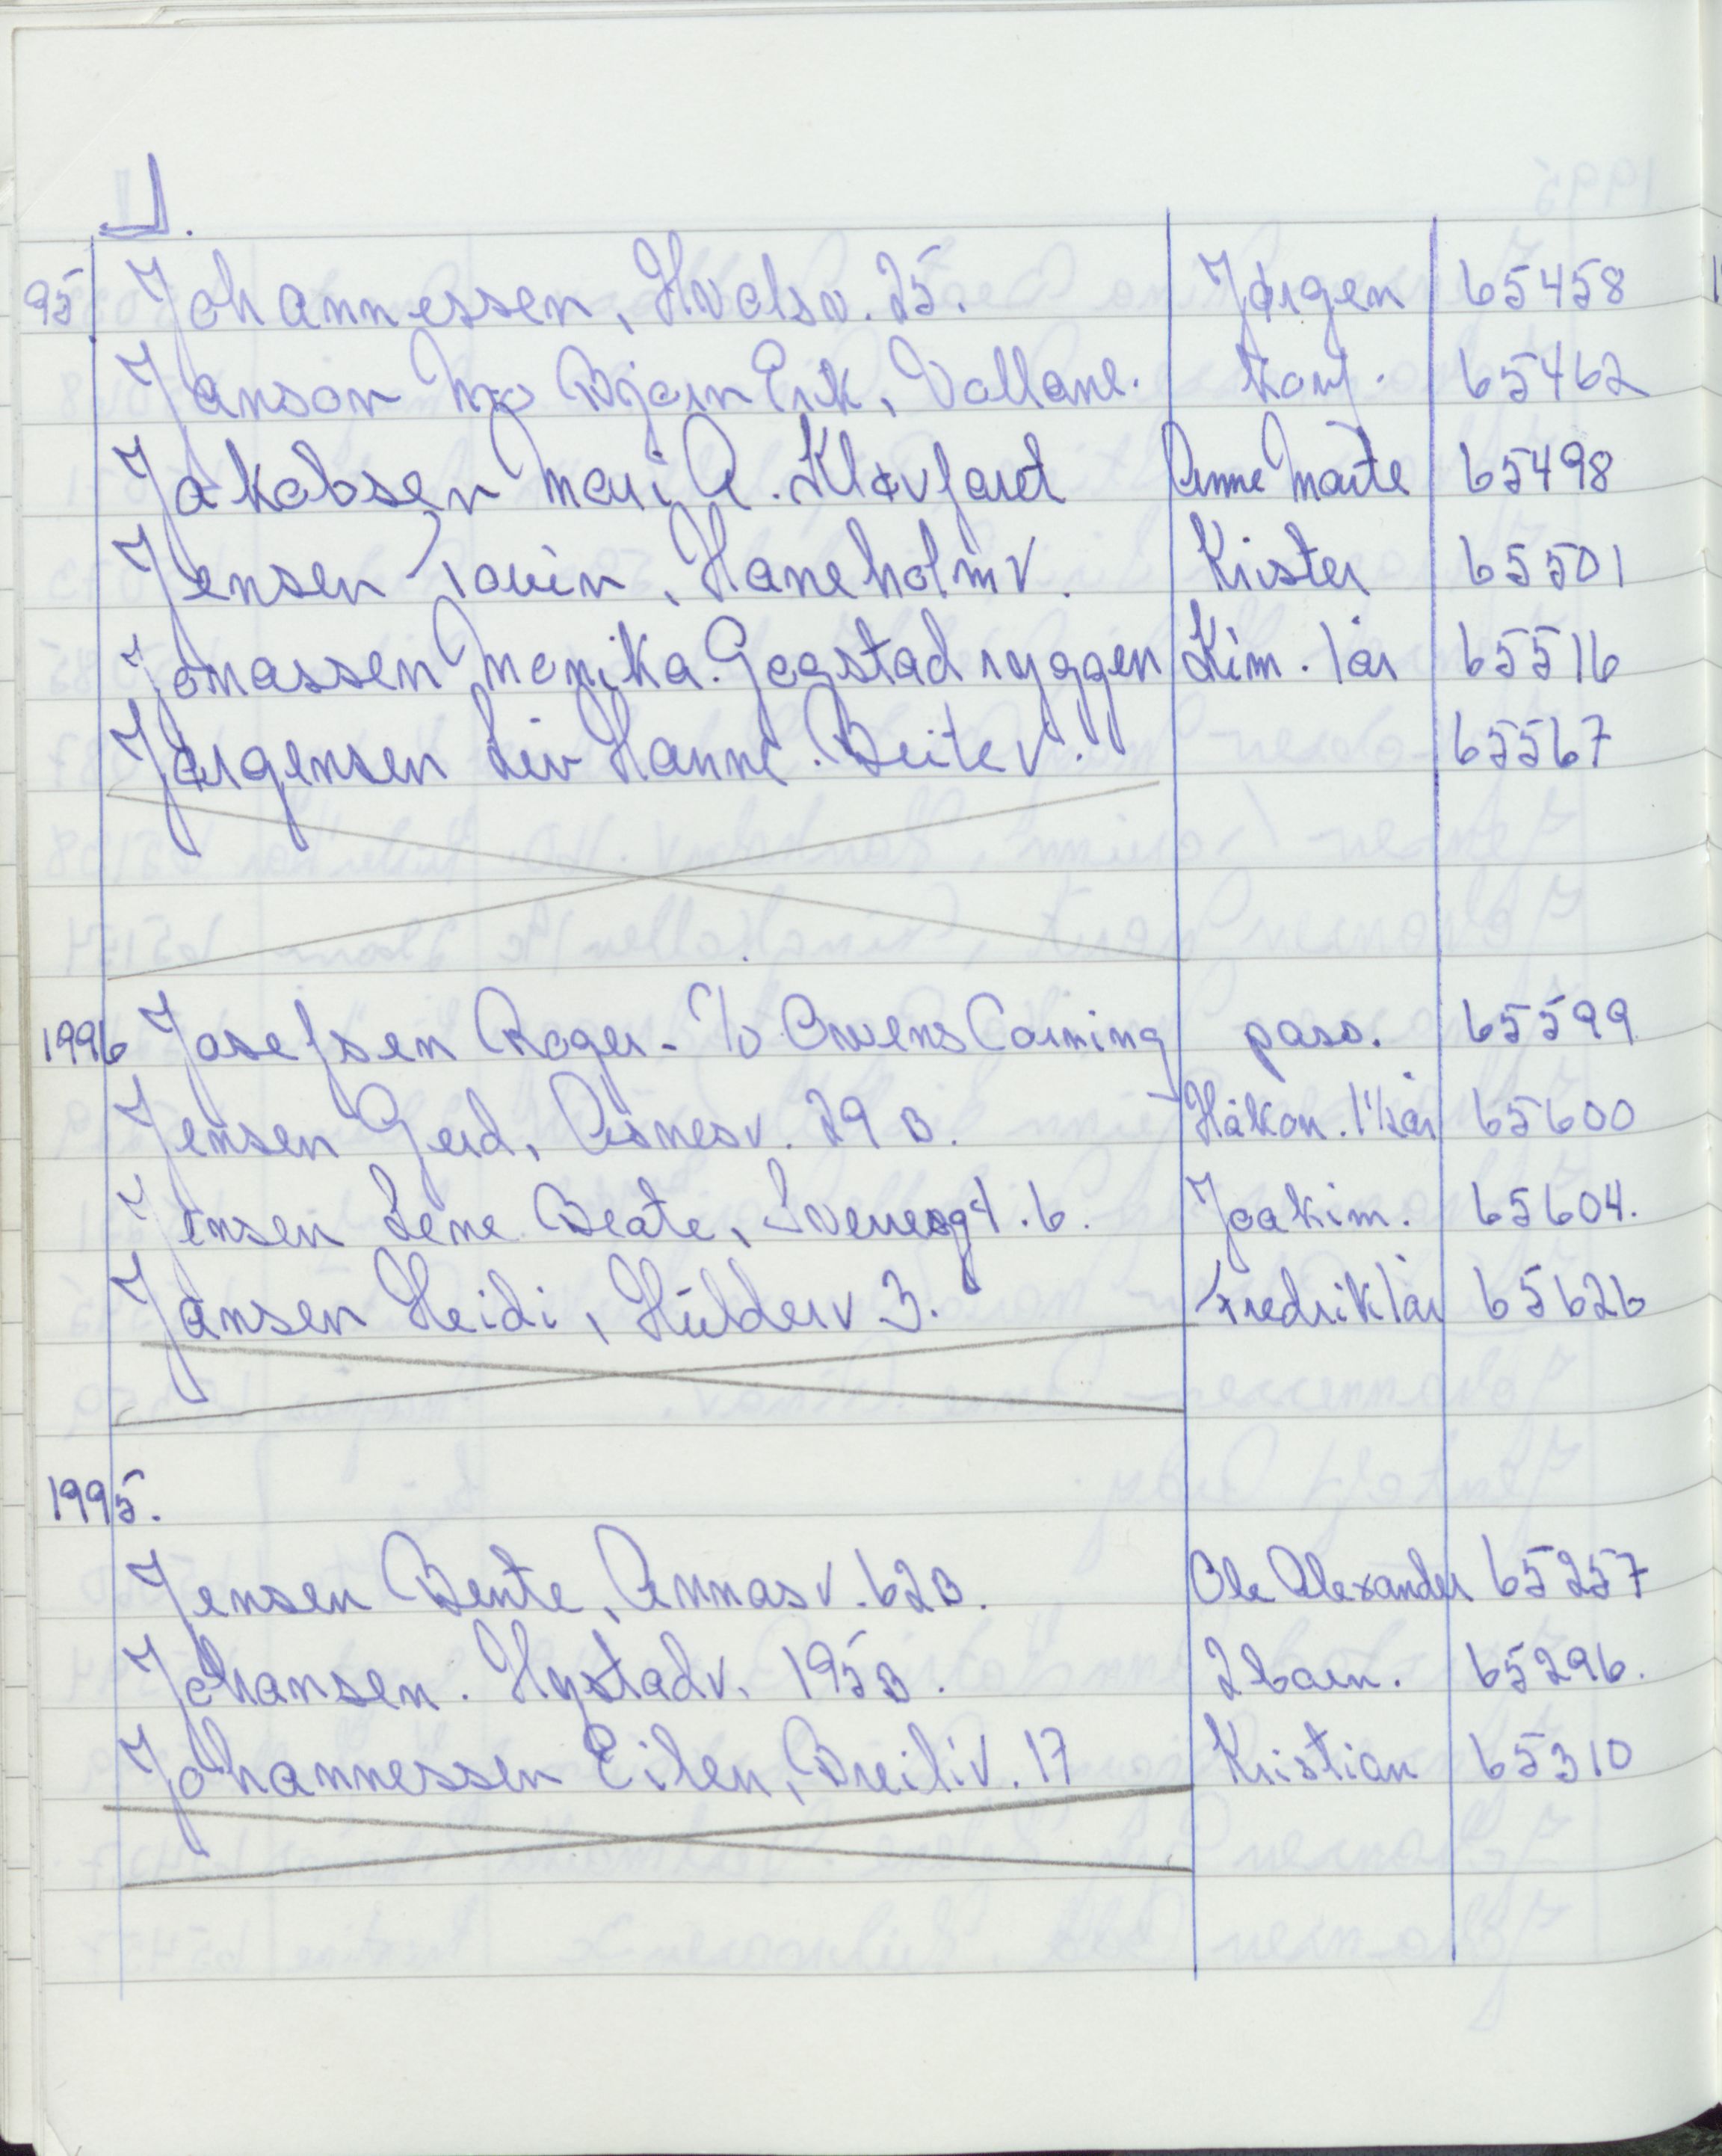 J.
95 Johannessen, Hvalsv. 25. Jørgen 65458
Janson Bjørn Erik, Vollane. Konf. 65462
Jakobsen Mari A. Kløvfaret Anne Marte 65498
Jensen Torvin, Haneholmv. Krister 65501
Jonassen Monika. Gogstadryggen Kim. 1 år 65516
Jørgensen Liv Hanne. Beitev. 65567
1996 Josefsen Roger - C/o Owens Corning pass. 65599
Jensen Gerd, Asnesv. 29 B. Håkon. 1 1/2 år 65600
Jensen Lene Beate, Sverresgt. 6. Joakim. 65604.
Jansen Heidi, Hulderv 3. Fredrik 1 år 65626
1995.
Jensen Bente, Annasv. 62B. Ole Alexander 65257
Johansen. Hystadv. 195B. 2 barn. 65296.
Johannessen Eilen, Breiliv. 17 Kristian 65310